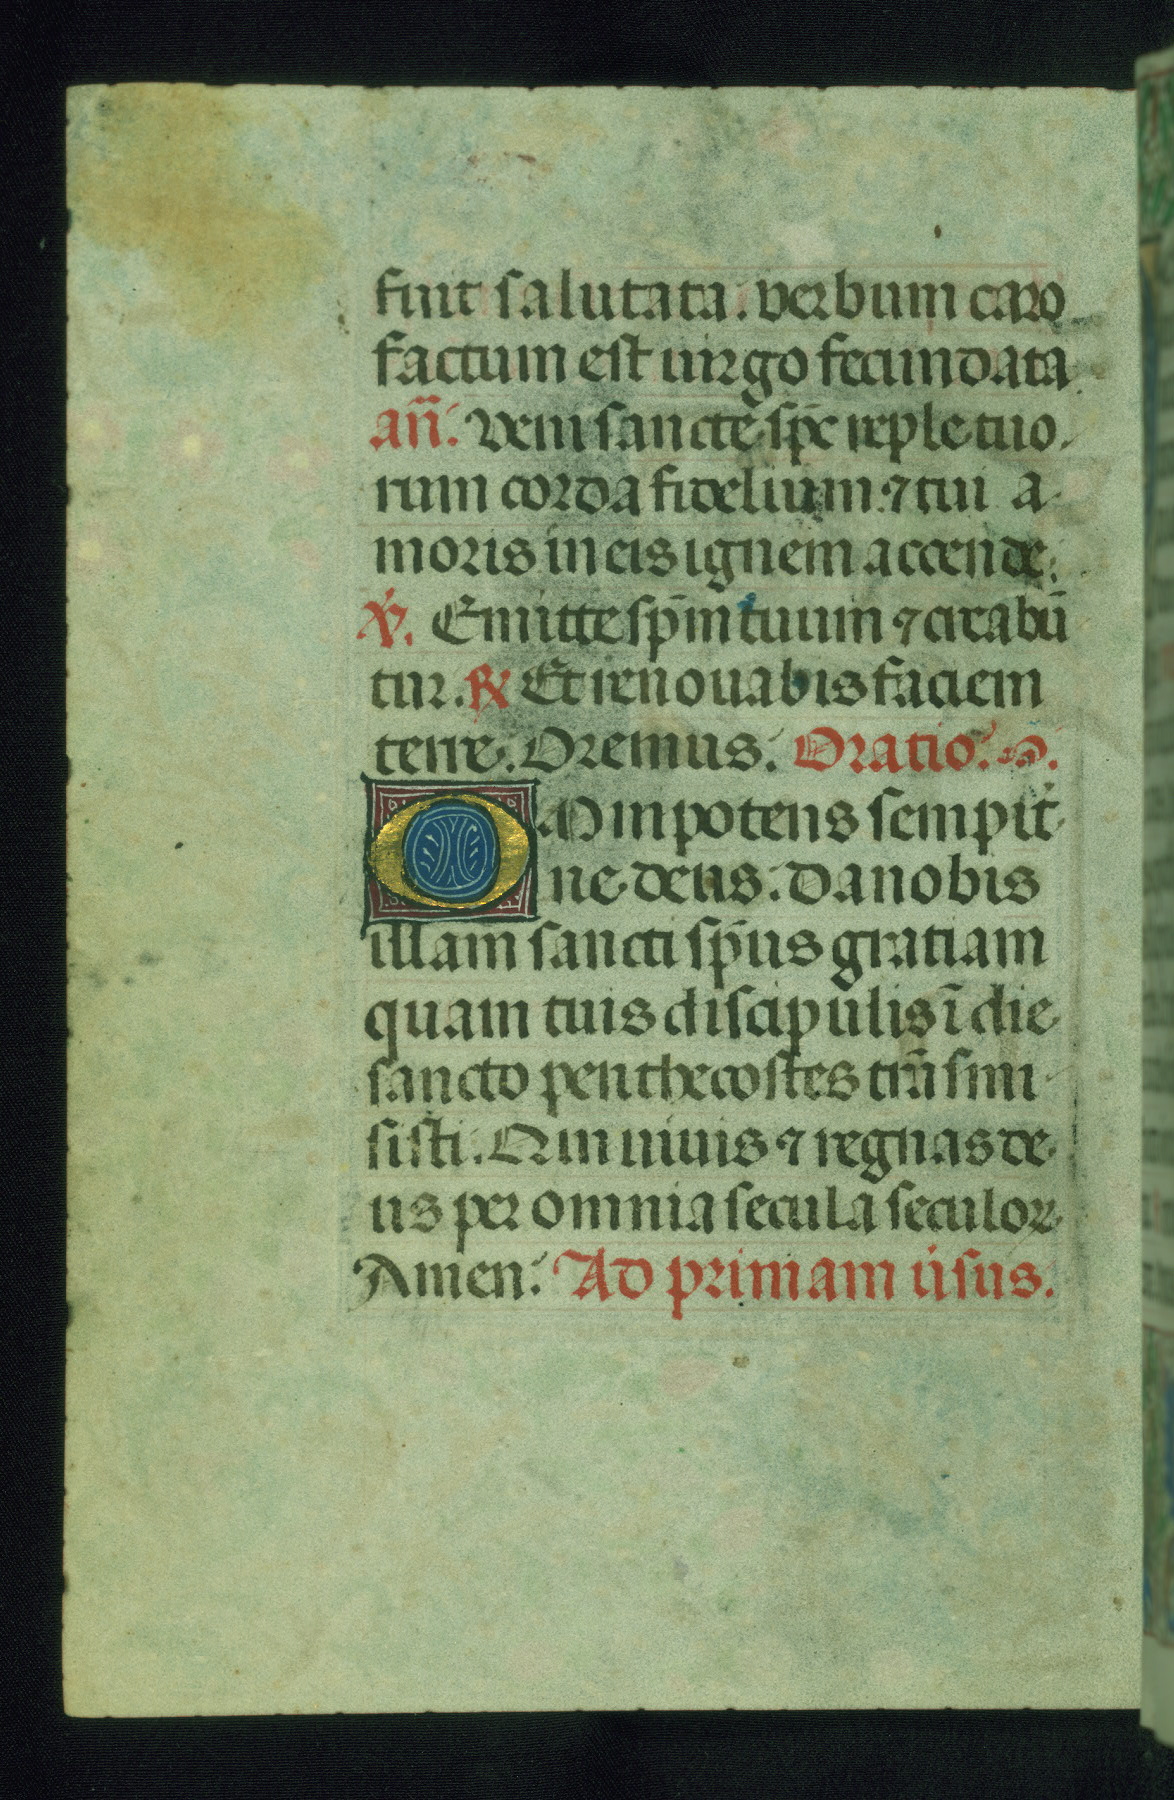 fuit salutata. verbum caro
factum est uirgo fecundata
an̄. Veni sancte sp̄e reple tuo
rum corda fidelium. ⁊ tui a
moris in eis ignem accende.
V̇. Emitte sp̄m tuum ⁊ creabū
tur. ℟ Et renouabis faciem
terre. Oremus. Oratio.
OMnipotens sempit̄
ne deus. da nobis
illam sancti sp̄us gratiam
quam tuis discipulis ī die
sancto penthecostes trāsmi
sisti. Qui uiuis ⁊ regnas de
us per omnia secula seculoꝝ
Amen. Ad primam u̇sus.